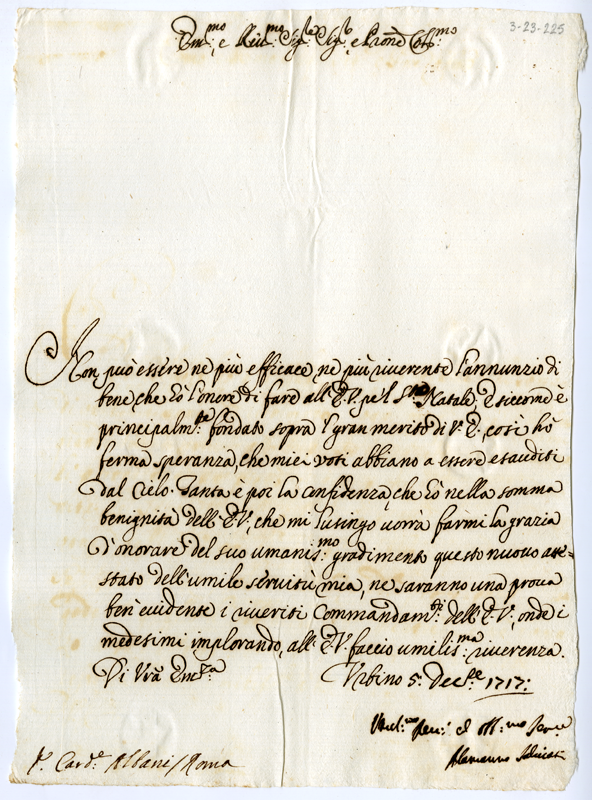 3-23-225
Em.mo e Rev.mo Sig.re Sig.r e Pron̄e Col.mo
Non può essere ne più efficace, ne più riverente l'annunzio di
bene, che hò l'onore di fare all'E.V. pe'l S.mo Natale. E siccome è
principalm.te fondato sopra l gran merito di V.E., così hò
ferma speranza, che miei voti abbiano a essere esauditi
dal Cielo. Tanta è poi la confidenza, che hò nella somma
benignità dell'E.V., che mi lusingo vorrà farmi la grazia
d'onorare del suo umanis.mo gradimento questo nuovo atte=
stato dell'umile servitù mia, ne saranno una prova
ben'evidente i riveriti Commandam.ti dell'E.V., onde i
medesimi implorando, all'E.V. faccio umilis.ma riverenza.
Di Vrā Emz.a Urbino 5: Dec.re 1717:
Umil.mo ed Obb.mo Serv.e
Alamanno Salviati
S.r Card.e Albani / Roma